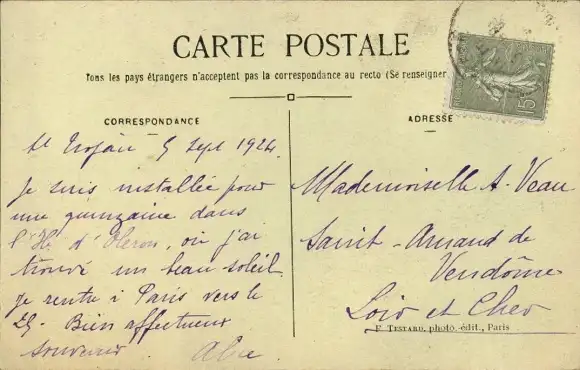 CARTE POSTALE
Tous les pays étrangers n'acceptent pas la correspondance au recto (Se renseigner
CORRESPONDANCE
St Trojan 5 Sept 1924.
Je suis installée pour
une quinzaine dans
l'Ile d'Oleron, où j'ai
trouvé un beau soleil.
je rentre à Paris vers le
Bien affectueux
souvenir
ADRESSE
Mademoiselle A. Veau
Saint-Amand de
Vendôme
Loir et Cher
F. TESTARD, photo.-édit., Paris
15